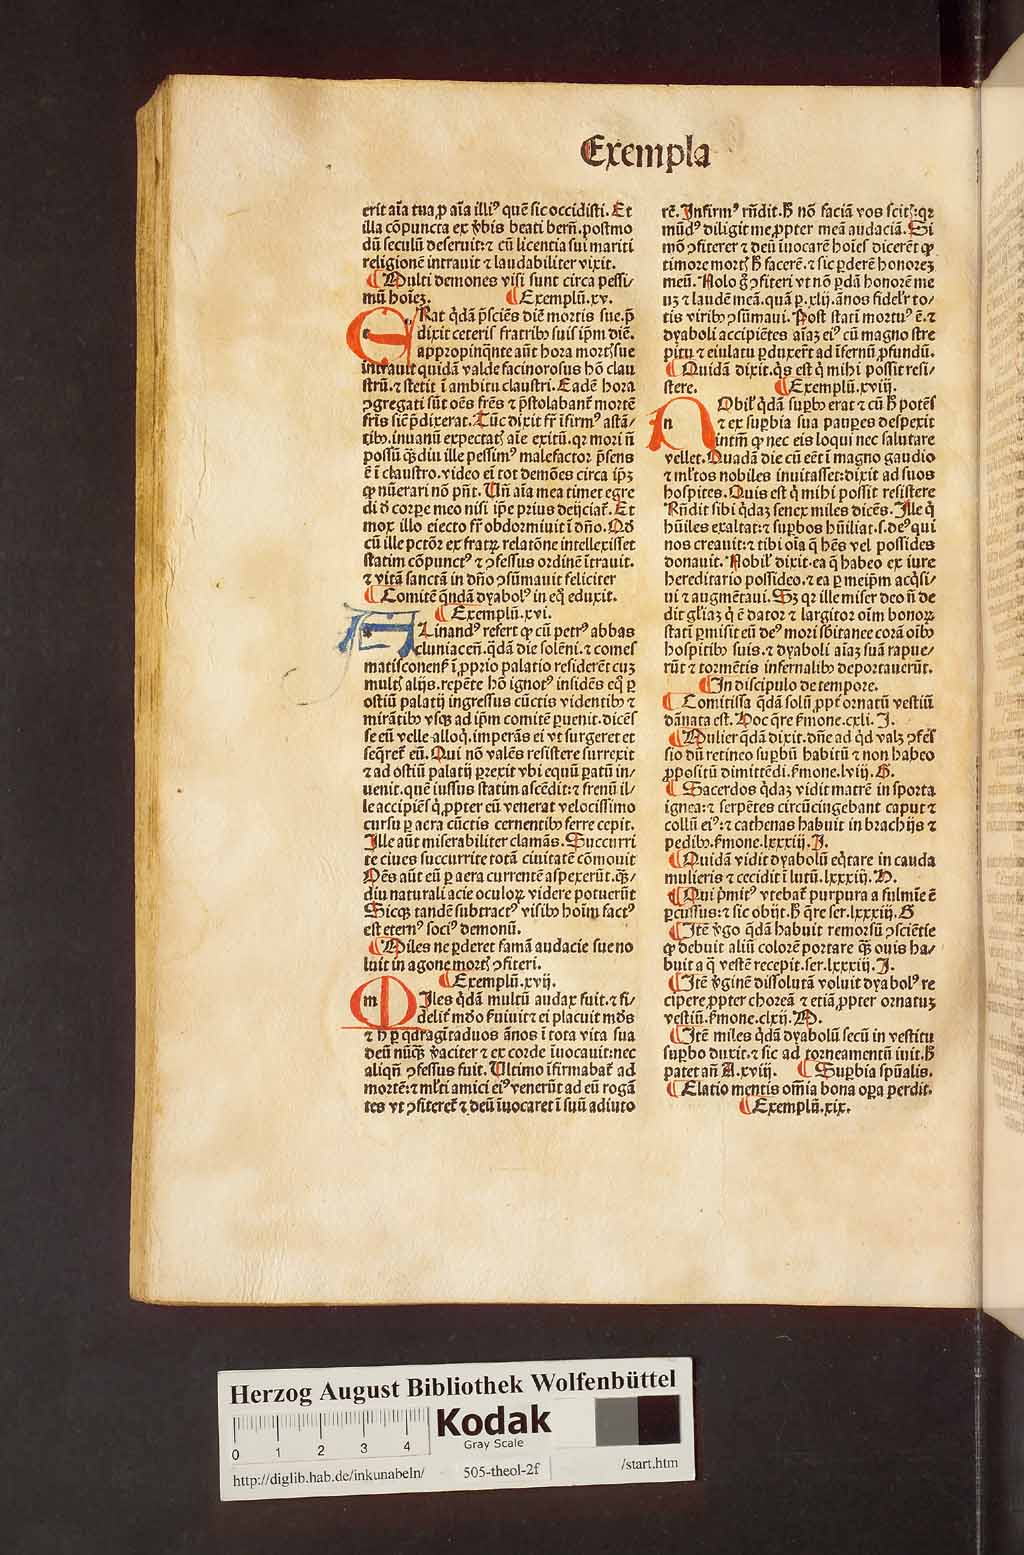 Exempla
erit aīa tua ꝓ aīa illiꝰ quē sic occidisti. Et
illa cōpuncta ex v̄bis beati bern̄. postmo
dū seculū deseruit: ⁊ cū licentia sui mariti
religionē intrauit ⁊ laudabiliter vixit.
¶ Multi demones visi sunt circa pessi⸗
mū hoīeꝫ. ¶ Exemplū. xv.
ERat q̇dā p̄sciēs diē mortis sue. ꝑ
dixit ceteris fratribꝫ suis ip̄m diē.
appropinq̄nte aūt hora mortꝭ sue
intrauit quidā valde facinorosus hō clau
strū. ⁊ stetit ī ambitu claustri. Eadē hora
ꝯgregati sūt oēs frēs ⁊ p̄stolabant̄ mortē
fr̄is sic̄ p̄dixerat. Tūc dixit fr̄ īfirmꝰ astā⸗
tibꝫ. in vanū expectatꝭ aīe exitū. qꝛ mori nō
possū q̄ꝫdiu ille pessimꝰ malefactor p̄sens
ē ī claustro. video eī tot demōes circa ip̄ꝫ
ꝙ nūerari nō pn̄t. Un̄ aīa mea timet egre
di d̄ corpe meo nisi ip̄e prius deijciat̄. Et
mox illo eiecto fr̄ obdormiuit ī dn̄o. Qd̄
cū ille pctōr ex fratꝝ relatōne intellexisset
statim cōpunctꝰ ⁊ ꝯfessus ordinē ītrauit.
⁊ vitā sanctā in dn̄o ꝯsūmauit feliciter
¶ Comitē q̄ndā dyabolꝰ in eq̄ eduxit.
¶ Exemplū. xvi.
ALinandꝰ refert ꝙ cū petrꝰ abbas
cluniaceñ. q̇dā die solēni. ⁊ comes
matisconenẜ ī ꝓprio palatio resideret cuꝫ
multꝭ alijs. repēte hō ignotꝰ insidēs eq̄ ꝑ
ostiū palatij ingressus cūctis videntibꝫ ⁊
mirātibꝫ vsqꝫ ad ip̄m comitē ꝑuenit. dicēs
se eū velle alloq̇. imperās ei vt surgeret et
seq̄ret̄ eū. Qui nō valēs resistere surrexit
⁊ ad ostiū palatij ꝑrexit vbi equū ꝑatū in⸗
uenit. quē iussus statim ascēdit: ⁊ frenū il⸗
le accipiēs q̇ ꝓpter eū venerat velocissimo
cursu ꝑ aera cūctis cernentibꝫ ferre cepit.
Ille aūt miserabiliter clamās. Succurri
te ciues succurrite totā ciuitatē cōmouit
Oēs aūt eū ꝑ aera currentē aspexerūt. q̄ꝫ⸗
diu naturali acie oculoꝝ videre potuerūt
Sicqꝫ tandē subtractꝰ visibꝫ hoīm factꝰ
est eternꝰ sociꝰ demonū.
¶ Miles ne ꝑderet famā audacie sue no
luit in agone mortꝭ ꝯfiteri.
¶ Exemplū. xvij.
MIles q̇dā multū audax fuit. ⁊ fi⸗
delit̄ mūdo ẜuiuit ⁊ ei placuit mūdꝰ
⁊ h̄ ꝑ qdragītaduos ānos ī tota vita sua
deū nūqꝫ v̄aciter ⁊ ex corde īuocauit: nec
aliqn̄ ꝯfessus fuit. Ultimo īfirmabat̄ ad
mortē: ⁊ ml̄ti amici eiꝰ venerūt ad eū rogā
tes vt ꝯfiteret̄ ⁊ deū īuocaret ī suū adiuto
rē. Infirmꝰ rn̄dit. H̄ nō faciā vos scitꝭ: qꝛ
mūdꝰ diligit me ꝓpter meā audaciā. Si
mō ꝯfiterer ⁊ deū īuocarē hoīes dicerēt ꝙ
timore mortꝭ h̄ facerē. ⁊ sic ꝑderē honoreꝫ
meū. Nolo g̊ ꝯfiteri vt nō ꝑdā honorē me
uꝫ ⁊ laudē meā. quā ꝑ. xlij. ānos fidelr̄ to⸗
tis viribꝫ ꝯsūmaui. Post statī mortuꝰ ē. ⁊
dyaboli accipiētes aīaꝫ eiꝰ cū magno stre
pitu ⁊ eiulatu ꝑduxerūt ad īfernū ꝓfundū.
¶ Quidā dixit. q̇s est q̇ mihi possit resi⸗
stere. ¶ Exemplū. xviij.
NObilꝭ q̇dā suꝑbꝰ erat ⁊ cū h̄ potēs
⁊ ex suꝑbia sua pauꝑes despexit
intm̄ ꝙ nec eis loqui nec salutare
vellet. Quadā die cū eēt ī magno gaudio
⁊ ml̄tos nobiles inuitasset: dixit ad suos
hospites. Quis est q̇ mihi possit resistere
Rn̄dit sibi q̇daꝫ senex miles dicēs. Ille q̇
hūiles exaltat: ⁊ suꝑbos hūiliat. s. deꝰ qui
nos creauit: ⁊ tibi oīa q̄ hēs vel possides
donauit. Nobilꝭ dixit. ea q̄ habeo ex iure
hereditario possideo. ⁊ ea ꝑ meip̄m acq̇si⸗
ui ⁊ augmētaui. Sꝫ qꝛ ille miser deo nō de
dit gl̄iaꝫ q̇ ē dator ⁊ largitor oīm bonoꝝ
statī ꝑmisit eū deꝰ mori sbitanee corā oībꝫ
hospitibꝫ suis. ⁊ dyaboli aīaꝫ suā rapue⸗
rūt ⁊ tormētis infernalibꝫ deportauerūt.
¶ In discipulo de tempore.
¶ Comitissa q̇dā solū ꝓpt̄ ornatū vestiū
dānata est. Hoc q̄re ẜmone. cxli. I.
¶ Mulier q̇dā dixit. dn̄e ad qd valꝫ ꝯfes
sio dū retineo suꝑbū habitū ⁊ non habeo
ꝓpositū dimittēdi. ẜmone. lviij. G.
¶ Sacerdos q̇daꝫ vidit matrē in sporta
ignea: ⁊ serpētes circūcingebant caput ⁊
collū eiꝰ: ⁊ cathenas habuit in brachijs ⁊
pedibꝫ. ẜmone. lxxxiij. I.
¶ Quidā vidit dyabolū eq̇tare in cauda
mulieris ⁊ cecidit ī lutū. lxxxiij. H.
¶ Qui ṗmitꝰ vtebat̄ purpura a fulmīe ē
ꝑcussus: ⁊ sic obijt. h̄ q̄re ser. lxxxiij. G
¶ Itē v̄go q̄dā habuit remorsū ꝯsciētie
ꝙ debuit aliū colorē portare q̄ꝫ ouis ha⸗
buit a q̄ vestē recepit. ser. lxxxiij. I.
¶ Itē v̄ginē dissolutā voluit dyabolꝰ re
cipere ꝓpter choreā ⁊ etiā ꝓpter ornatuꝫ
vestiū. ẜmone. clxij. M.
¶ Itē miles q̇dā dyabolū secū in vestitu
suꝑbo duxit. ⁊ sic ad torneamentū iuit. h̄
patet an̄ A. xviij. ¶ Suꝑbia spūalis.
¶ Elatio mentis om̄ia bona oꝑa perdit.
¶ Exemplū. xix.
Herzog August Bibliothek Wolfenbüttel
0 1 2 3 4
Kodak
Gray Scale
http://diglib.hab.de/inkunabeln/ 505-theol-2f /start.htm